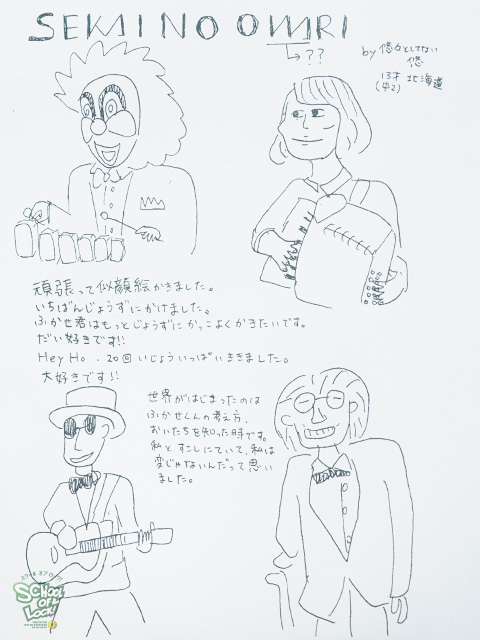 SEKAI NO OWARI
→??
by 悠々としてない
悠
13才 北海道
(中2)
頑張って似顔絵かきました。
いちばんじょうずにかけました。
ふかせ君はもっとじょうずにかっこよくかきたいです。
だい好きです!!
Hey Ho、20回いじょういっぱいききました。
大好きです!!
世界がはじまったのは
ふかせくんの考え方、
おいたちを知った時です。
私とすこしにていて、私は
変じゃないんだって思い
ました。
スクール オブ ロック!
SCHOOL
OF
LOCK!